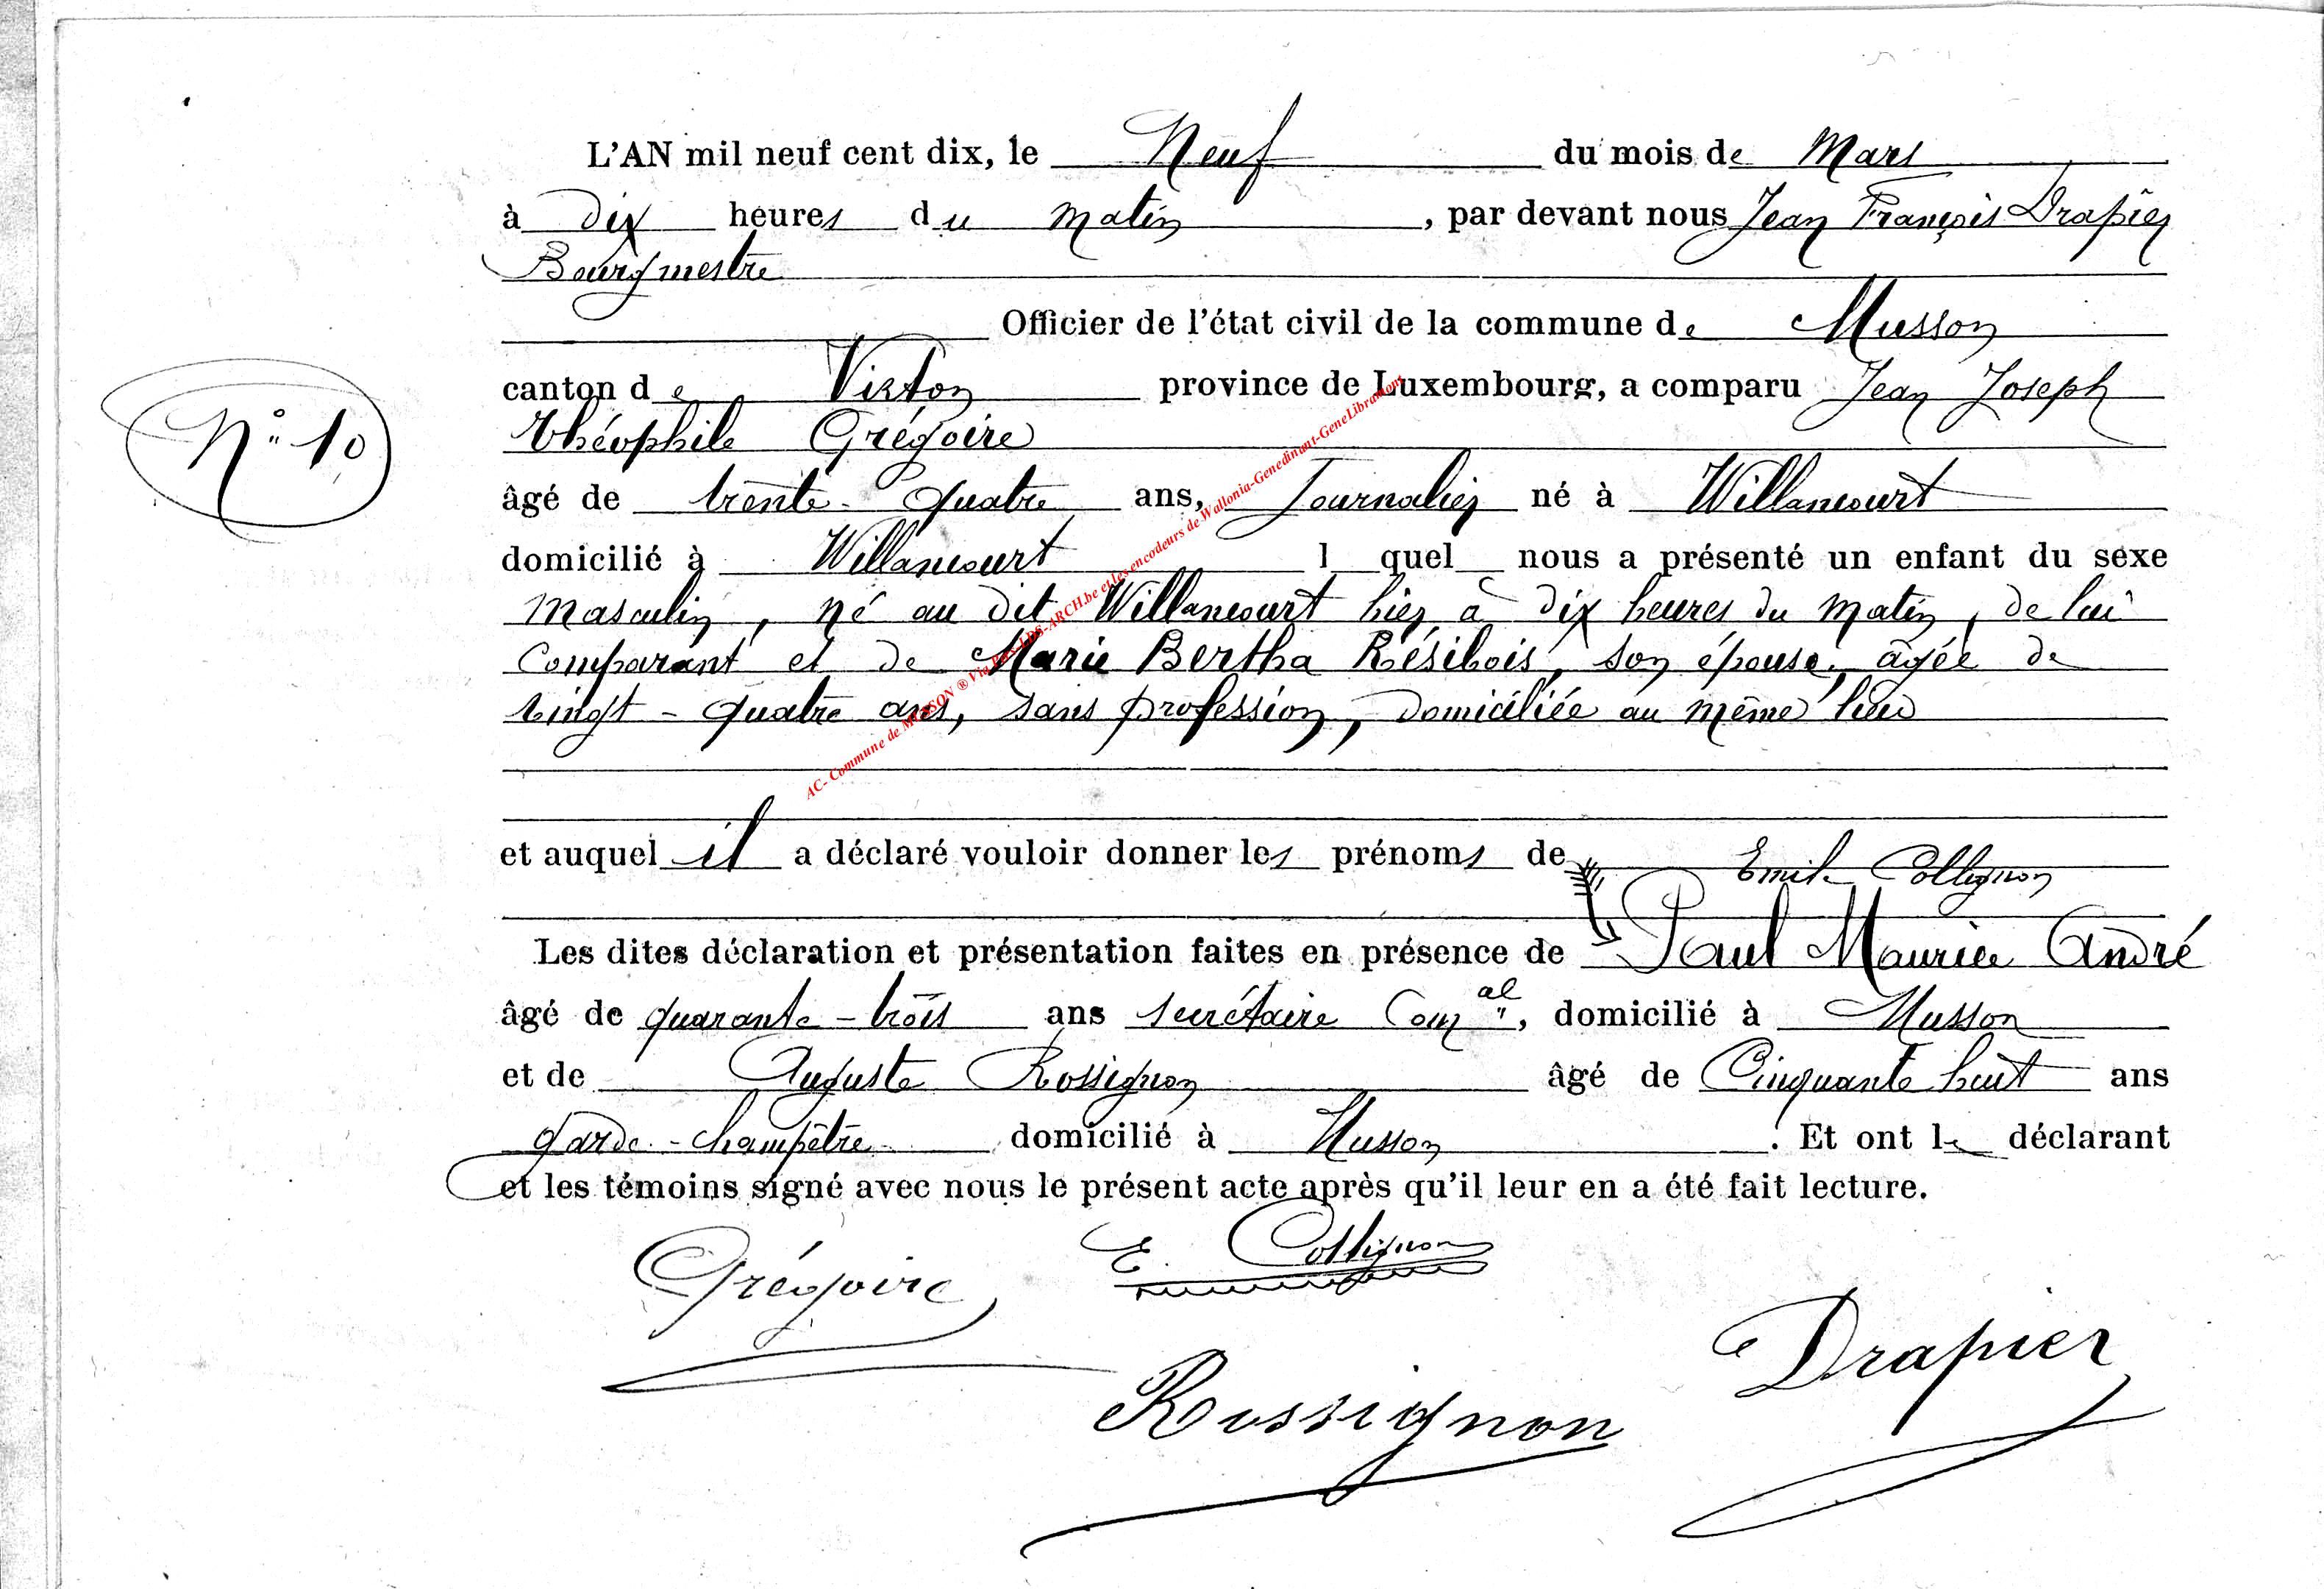 L'AN mil neuf cent dix, le Neuf du mois de Mars
à dix heures du matin, par devant nous Jean François Drapier
Bourgmestre
Officier de l'état civil de la commune de Musson
canton de Virton province de Luxembourg, a comparu Jean Joseph
N° 10
Théophile Grégoire
âgé de trente-quatre ans, Journalier né à Willancourt
domicilié à Willancourt l quel nous a présenté un enfant du sexe
masculin, né au dit Willancourt hier à dix heures du matin, de lui
comparant et de Marie Bertha Résibois, son épouse, âgée de
vingt-quatre ans, sans profession, domiciliée au même lieu
AC- Commune de MUSSON ® Via LUX-ARCH.be et les encodeurs de Wallonia-Genedinant-GeneLibramont
et auquel il a déclaré vouloir donner les prénoms de Emile Collignon
Les dites déclaration et présentation faites en présence de Paul Maurice André
âgé de quarante-trois ans secrétaire Com al, domicilié à Musson
et de Auguste Rossignon âgé de Cinquante huit ans
garde-champêtre domicilié à Musson. Et ont le déclarant
et les témoins signé avec nous le présent acte après qu'il leur en a été fait lecture.
Grégoire E. Collignon
Drapier
Rossignon